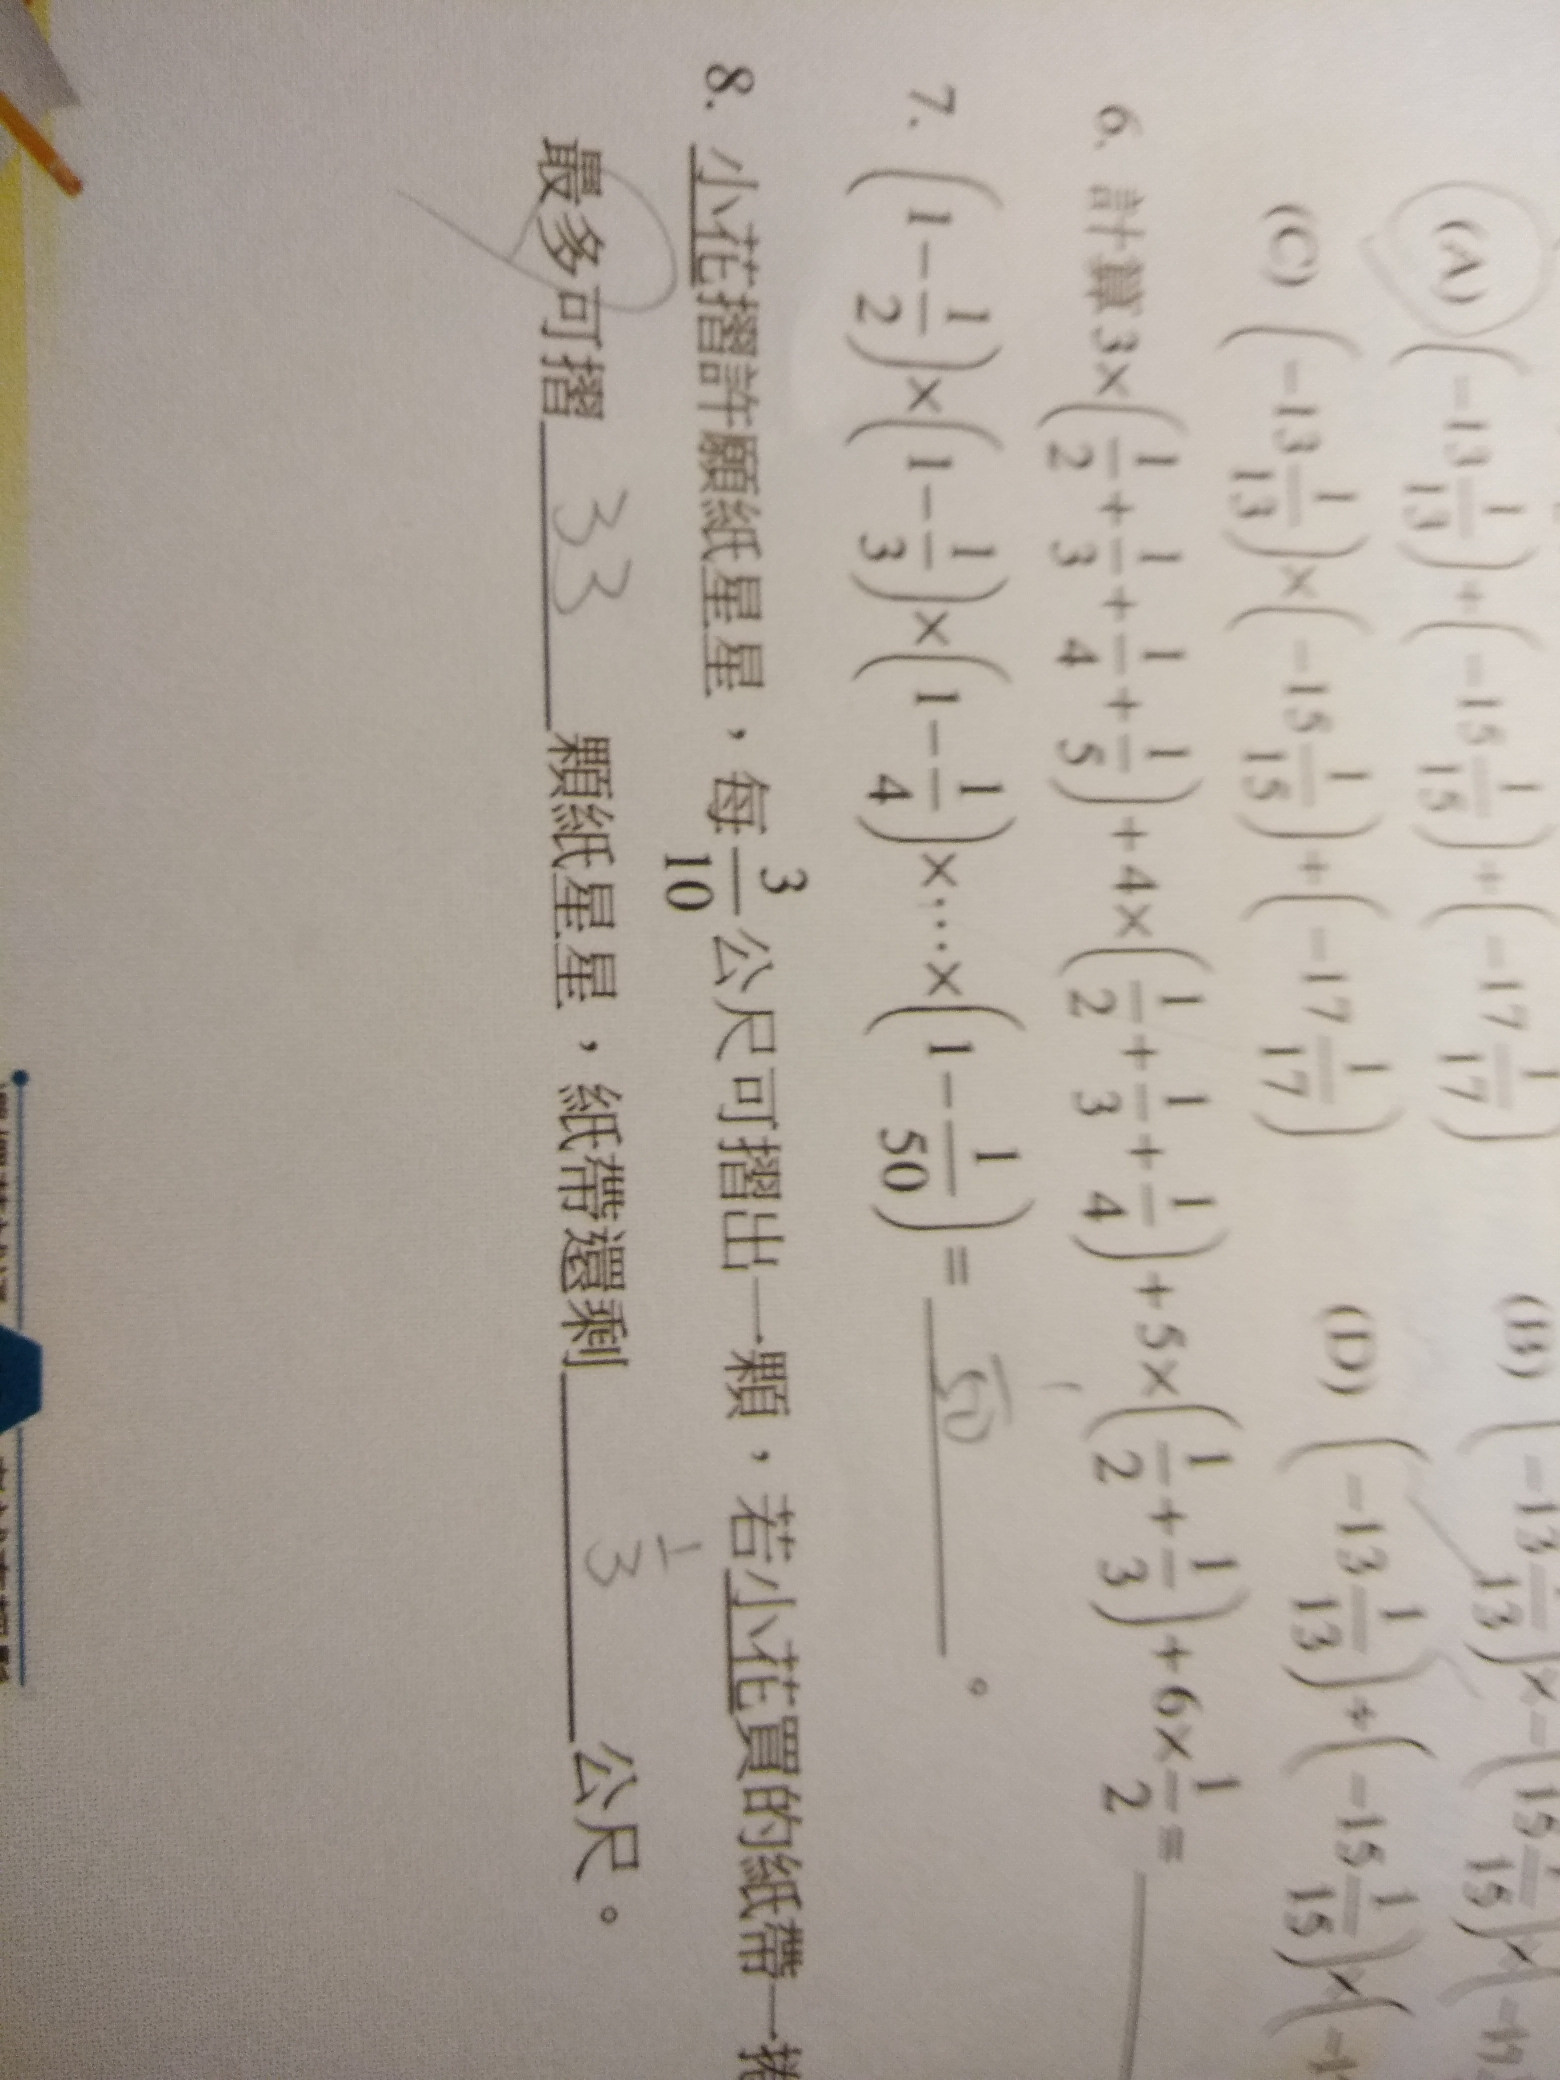 (A) (-13 1/13)+(-15 1/15)+(-17 1/17)
(B) (-13 1/13)×-(15 1/15)×(-17
(C) (-13 1/13)×(-15 1/15)+(-17 1/17)
(D) (-13 1/13)+(-15 1/15)×(-1
6. 計算3×(1/2+1/3+1/4+1/5)+4×(1/2+1/3+1/4)+5×(1/2+1/3)+6×1/2=
7. (1-1/2)×(1-1/3)×(1-1/4)×…×(1-1/50)= 1/50 。
8. 小花摺許願紙星星，每3/10公尺可摺出一顆，若小花買的紙帶一捲
最多可摺 33 顆紙星星，紙帶還剩 1/3 公尺。